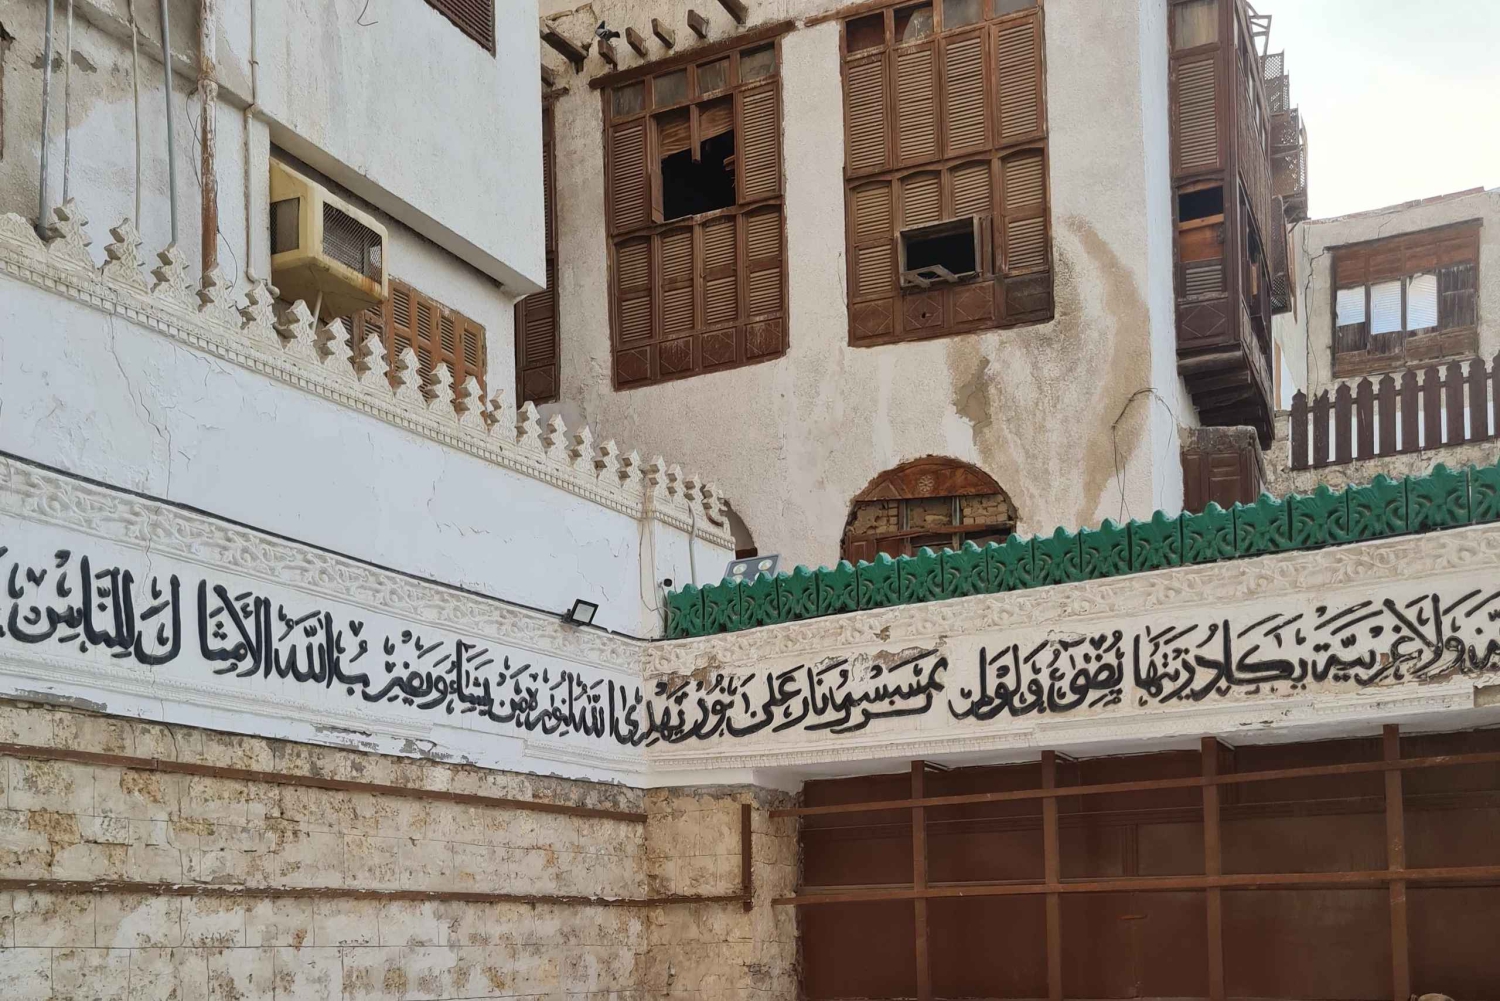 ولا غربية يكاد زيتها يضىء ولو لم تمسسه نار على نور يهدى الله لنوره من يشاء ويضرب الله الأمثال للناس